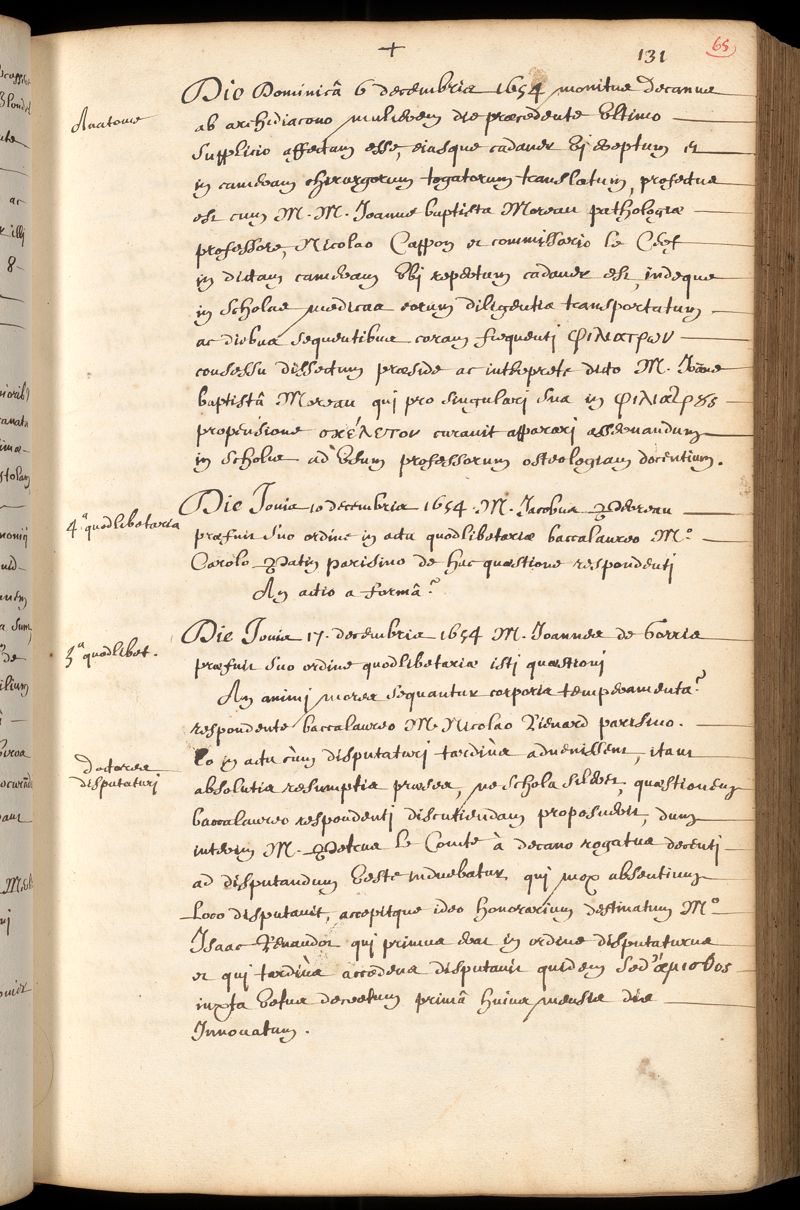 +
131
65
Anatome
Die Dominicâ 6 decembris 1654 monitus Decanus
ab archidiacono mulierem die præcedente ultimo
supplicio affectam esse, eiusque cadaver ei ereptum et
in cameram chirurgorum togatorum translatum, profectus
est cum M. M. Joanne baptista Moreau pathologiæ
professore, Nicolao Cappon et commissario le Cerf
in dictam cameram ubi repertum cadaver est, indeque
in scholas medicas eorum diligentia transportatum
ac diebus sequentibus coram frequenti φιλιατρων
consessu dissectum præside ac interprete dicto M. Joãne
baptistâ Moreau qui pro singulari sua in φιλιατρους
propensione σκέλετον curavit apparari asservandum
in scholis ad usum professorum osteologiam docentium.
4.ª quodlibetaria
Die Jovis 10 decembris 1654. M. Jacobus Perreau
præfuit suo ordine in actu quodlibetariæ baccalaureo M.º
Carolo Patin parisino de hac quæstione respondenti
An actio a formâ?
5ª quodlibet.
Die Jovis 17. decembris 1654 M. Joannes de Gorris
præfuit suo ordine quodlibetariæ isti quæstioni
An animi mores sequantur corporis temperamenta?
respondente baccalaureo M. Nicolao Rienard parisino.
Doctores
disputaturi
Eo in actu cùm disputaturi tardiùs advenissent, itaut
absolutis resumptis præses, ne schola sileret, quæstionem
baccalaureo respondenti discutiendam proposuerit, dum
interim M. Petrus le Comte à decano rogatus decenti
ad disputandum veste induebatur qui mox absentium
loco disputavit, accepitque ideo honorarium destinatum M.º
Isaac Renaudot qui primus erat in ordine disputaturus
et qui tardiùs accedens disputavit quidem sed ἄμισθος
iuxta vetus decretum primâ huius mensis die
Innovatum.